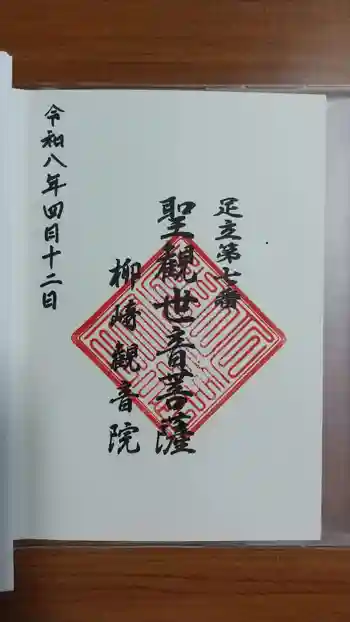 足立第七番
聖觀世音菩薩
柳崎觀音院
令和八年四月十二日